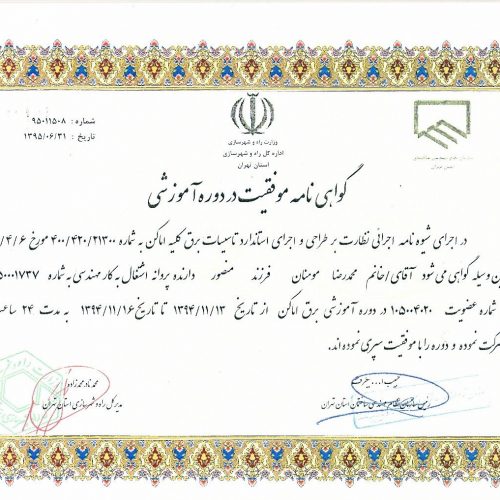 شماره : ۹۵۰۱۱۵۰۸
تاریخ : ۱۳۹۵/۰۶/۳۱
وزارت راه و شهرسازی
اداره کل راه و شهرسازی
استان تهران
گواهی نامه موفقیت در دوره آموزشی
در اجرای شیوه نامه اجرائی نظارت بر طراحی و اجرای استاندارد تاسیسات برق کلیه اماکن به شماره ۴۰۰/۴۲۰/۲۱۳۰۰ مورخ ۴/۶/
ین وسیله گواهی می شود آقای/خانم محمدرضا مومنان فرزند منصور دارنده پروانه اشتغال به کار مهندسی به شماره ۵۰۰۰۱۷۳۷
شماره عضویت ۱۰۵۰۰۴۰۲۰ در دوره آموزشی برق اماکن از تاریخ ۱۳۹۴/۱۱/۱۳ تا تاریخ ۱۳۹۴/۱۱/۱۶ به مدت ۲۴ ساعت
شرکت نموده و دوره را با موفقیت سپری نموده اند.
حبیب ا... بیطرف
رئیس سازمان نظام مهندسی ساختمان استان تهران
محمد نادر محمدزاده
مدیر کل راه و شهرسازی استان تهران